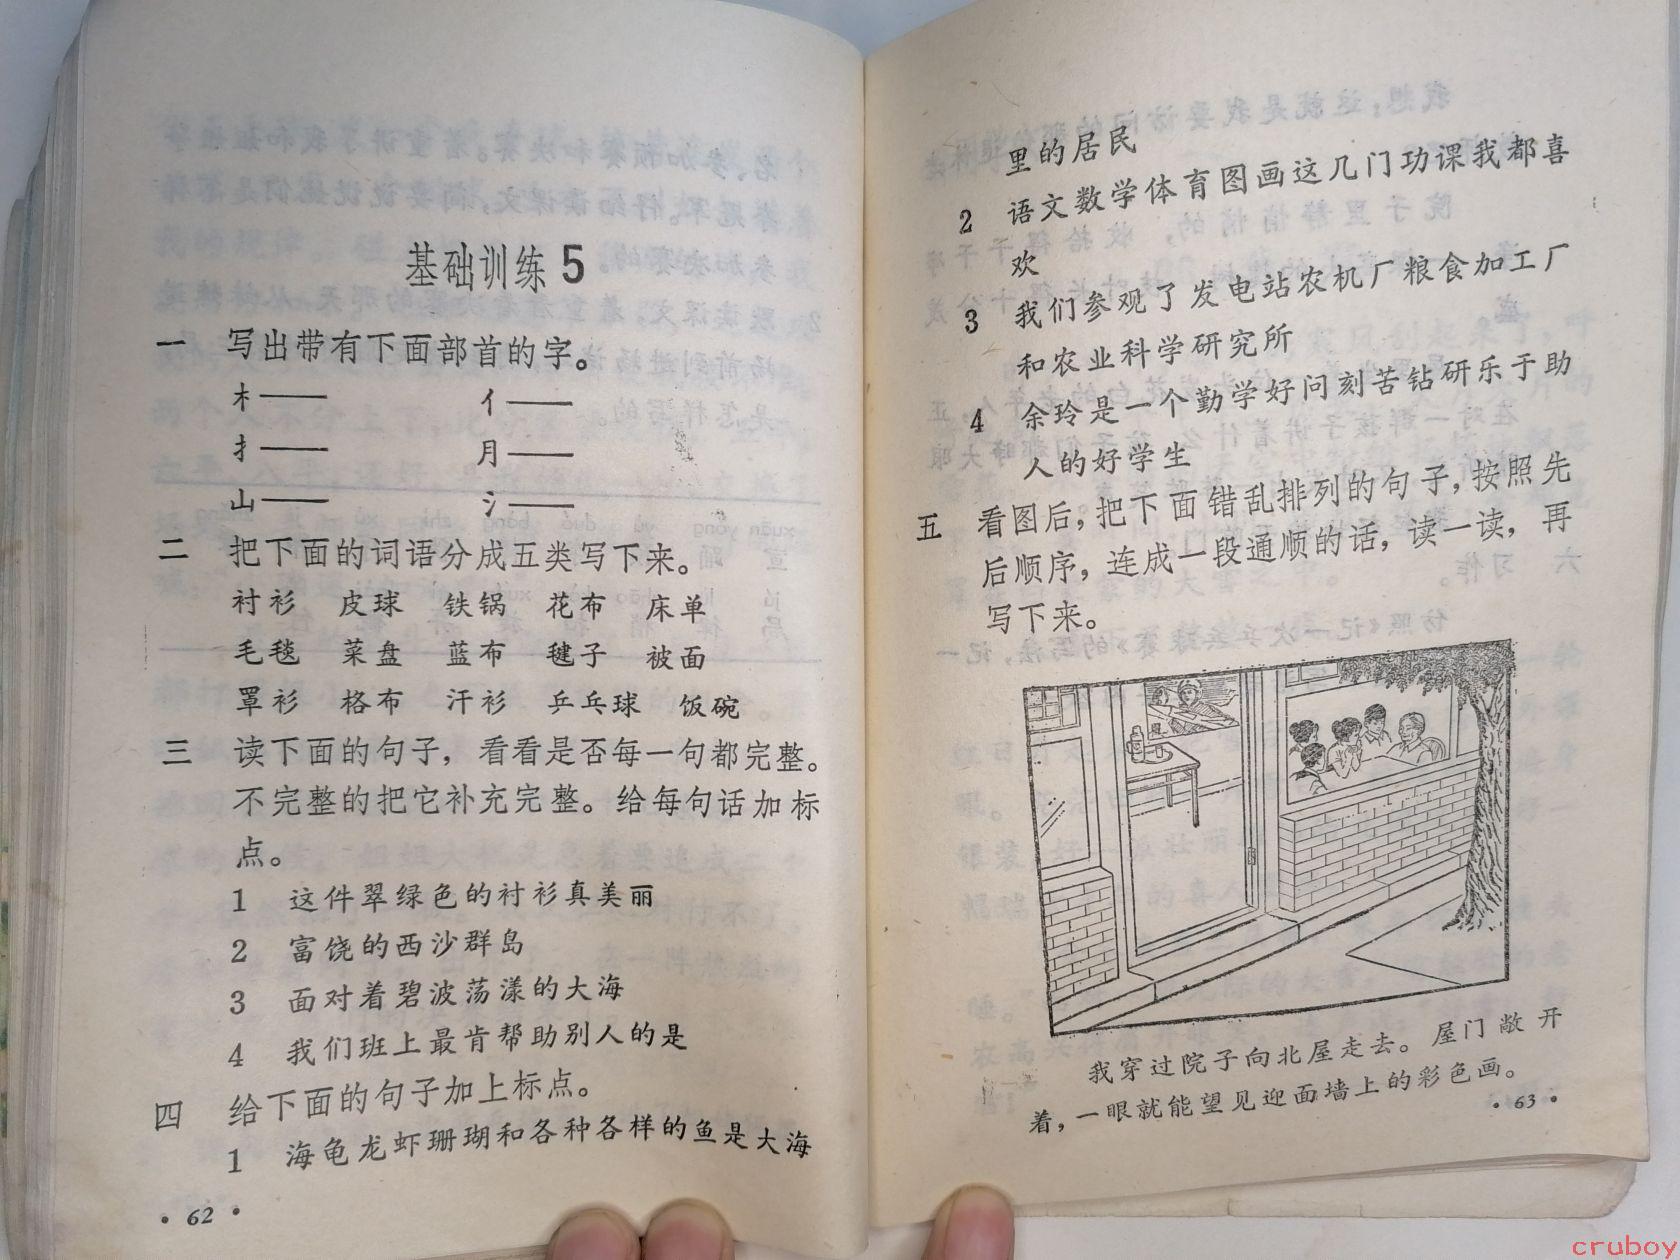 基础训练5
一 写出带有下面部首的字。
木—— 亻——
扌—— 月——
山—— 氵——
二 把下面的词语分成五类写下来。
衬衫 皮球 铁锅 花布 床单
毛毯 菜盘 蓝布 毽子 被面
罩衫 格布 汗衫 乒乓球 饭碗
三 读下面的句子，看看是否每一句都完整。
不完整的把它补充完整。给每句话加标
点。
1 这件翠绿色的衬衫真美丽
2 富饶的西沙群岛
3 面对着碧波荡漾的大海
4 我们班上最肯帮助别人的是
四 给下面的句子加上标点。
1 海龟龙虾珊瑚和各种各样的鱼是大海
·62·
里的居民
2 语文数学体育图画这几门功课我都喜
欢
3 我们参观了发电站农机厂粮食加工厂
和农业科学研究所
4 余玲是一个勤学好问刻苦钻研乐于助
人的好学生
五 看图后，把下面错乱排列的句子，按照先
后顺序，连成一段通顺的话，读一读，再
写下来。
我穿过院子向北屋走去。屋门敞开
着，一眼就能望见迎面墙上的彩色画。
·63·
cruboy